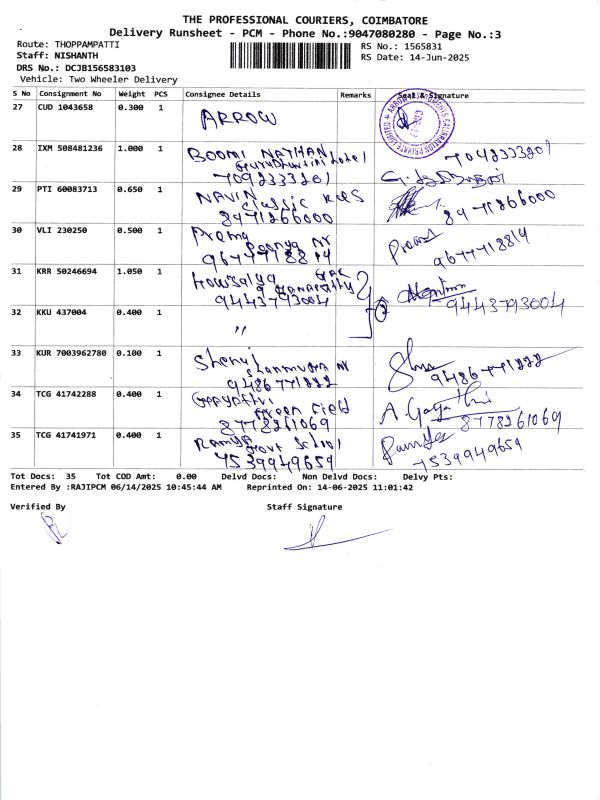 THE PROFESSIONAL COURIERS, COIMBATORE
Delivery Runsheet - PCM - Phone No.:9047080280 - Page No.:3
Route: THOPPAMPATTI
RS No.: 1565831
Staff: NISHANTH
RS Date: 14-Jun-2025
DRS No.: DCJB156583103
Vehicle: Two Wheeler Delivery
S No Consignment No Weight PCS Consignee Details Remarks Seal & Signature
27 CUD 1043658 0.300 1 ARROW
28 IXM 508481236 1.000 1 BOOMI NATHAN
hotel
7092333201 7092333201
29 PTI 60083713 0.650 1 NAVIN
Classic
8971266000 8971266000
30 VLI 230250 0.500 1 Prema
9677718814 9677718814
31 KRR 50246694 1.050 1 Kowsalya
9443793004 9443793004
32 KKU 437004 0.400 1 "
33 KUR 7003962780 0.100 1
Shanmuga Nr
9486771222 9486771222
34 TCG 41742288 0.400 1 Gayathri A. Gayathri
Green Field
8778261069 8778261069
35 TCG 41741971 0.400 1 Ramya Ramya
Govt School
7539949659 7539949659
Tot Docs: 35 Tot COD Amt: 0.00 Delvd Docs: Non Delvd Docs: Delvy Pts:
Entered By :RAJIPCM 06/14/2025 10:45:44 AM Reprinted On: 14-06-2025 11:01:42
Verified By Staff Signature